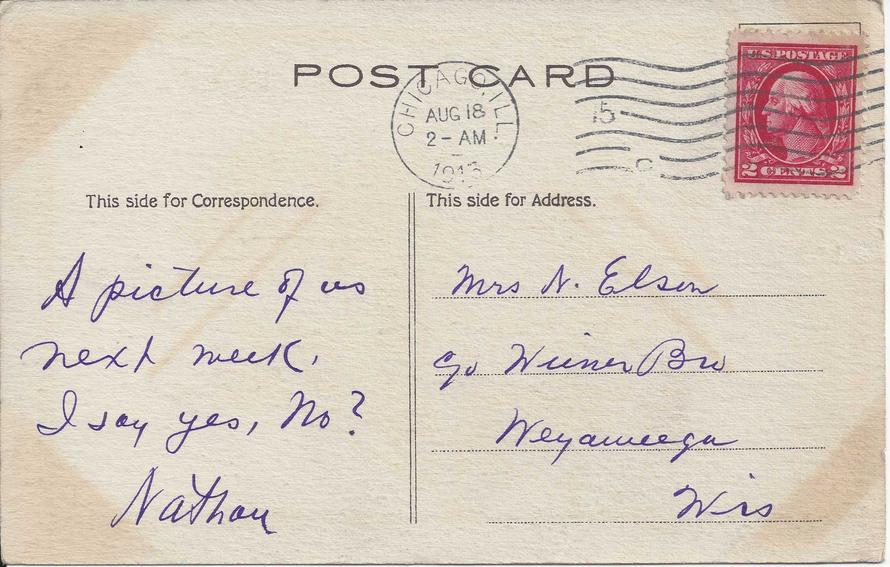 POST CARD
CHICAGO, ILL.
AUG 18
2 - AM
U.S. POSTAGE
2 CENTS 2
This side for Correspondence.
This side for Address.
A picture of us
next week,
I say yes, No?
Nathan
Mrs N. Elson
c/o Wiener Bro
Weyauwega
Wis